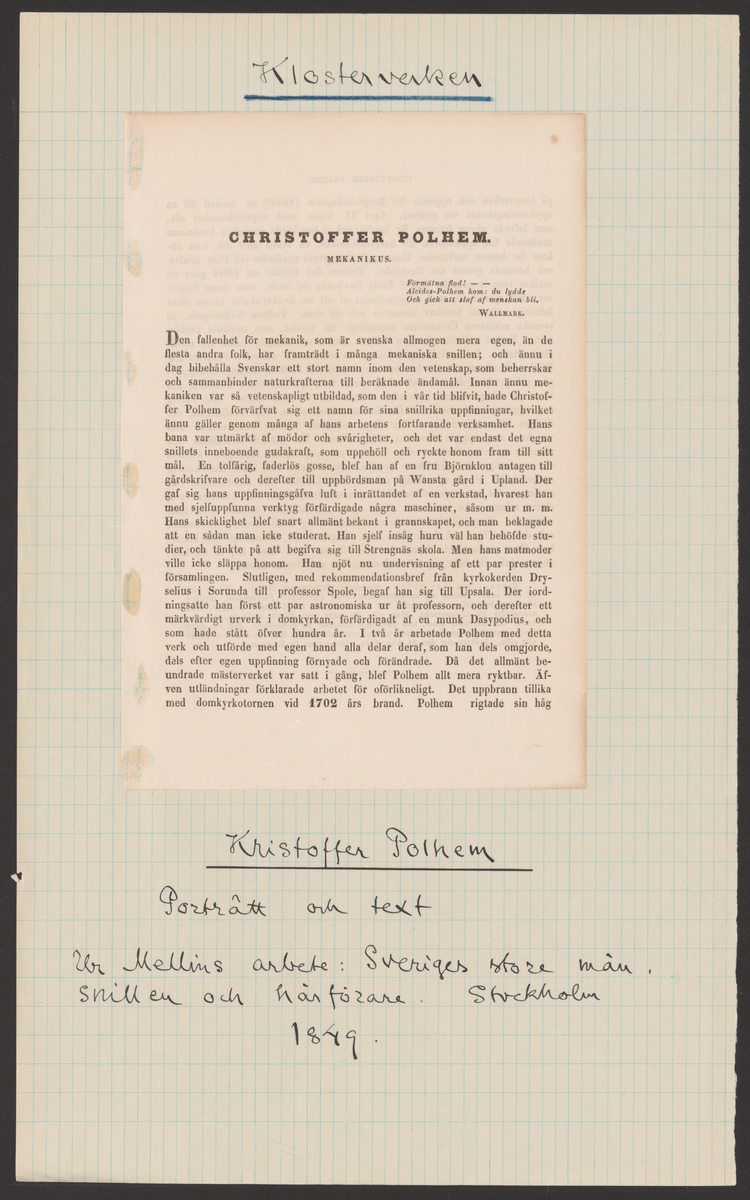 Klosterverken
CHRISTOFFER POLHEM.
MEKANIKUS.
Förmätna flod! — —
Alcides-Polhem kom: du lydde
Och gick att slaf af menskan bli.
WALLMARK.
Den fallenhet för mekanik, som är svenska allmogen mera egen, än de
flesta andra folk, har framträdt i många mekaniska snillen; och ännu i
dag bibehålla Svenskar ett stort namn inom den vetenskap, som beherrskar
och sammanbinder naturkrafterna till beräknade ändamål. Innan ännu me-
kaniken var så vetenskapligt utbildad, som den i vår tid blifvit, hade Christof-
fer Polhem förvärfvat sig ett namn för sina snillrika uppfinningar, hvilket
ännu gäller genom många af hans arbetens fortfarande verksamhet. Hans
bana var utmärkt af mödor och svårigheter, och det var endast det egna
snillets inneboende gudakraft, som uppehöll och ryckte honom fram till sitt
mål. En tolfårig, faderlös gosse, blef han af en fru Björnklou antagen till
gårdskrifvare och derefter till uppbördsman på Wansta gård i Upland. Der
gaf sig hans uppfinningsgåfva luft i inrättandet af en verkstad, hvarest han
med sjelfuppfunna verktyg förfärdigade några maschiner, såsom ur m. m.
Hans skicklighet blef snart allmänt bekant i grannskapet, och man beklagade
att en sådan man icke studerat. Han sjelf insåg huru väl han behöfde stu-
dier, och tänkte på att begifva sig till Strengnäs skola. Men hans matmoder
ville icke släppa honom. Han njöt nu undervisning af ett par prester i
församlingen. Slutligen, med rekommendationsbref från kyrkokerden Dry-
selius i Sorunda till professor Spole, begaf han sig till Upsala. Der iord-
ningsatte han först ett par astronomiska ur åt professorn, och derefter ett
märkvärdigt urverk i domkyrkan, förfärdigadt af en munk Dasypodius, och
som hade stått öfver hundra år. I två år arbetade Polhem med detta
verk och utförde med egen hand alla delar deraf, som han dels omgjorde,
dels efter egen uppfinning förnyade och förändrade. Då det allmänt be-
undrade mästerverket var satt i gång, blef Polhem allt mera ryktbar. Äf-
ven utländningar förklarade arbetet för oförlikneligt. Det uppbrann tillika
med domkyrkotornen vid 1702 års brand. Polhem rigtade sin håg
Kristoffer Polhem
Porträtt och text
Ur Mellins arbete: Sveriges store män.
snillen och härförare. Stockholm
1849.